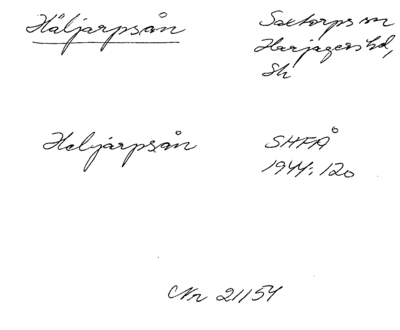 Häljarpsån
Saxtorps sn
Harjagers hd,
Sk
Heljarpsån
SHFÅ
1944: 120
Nr 21154